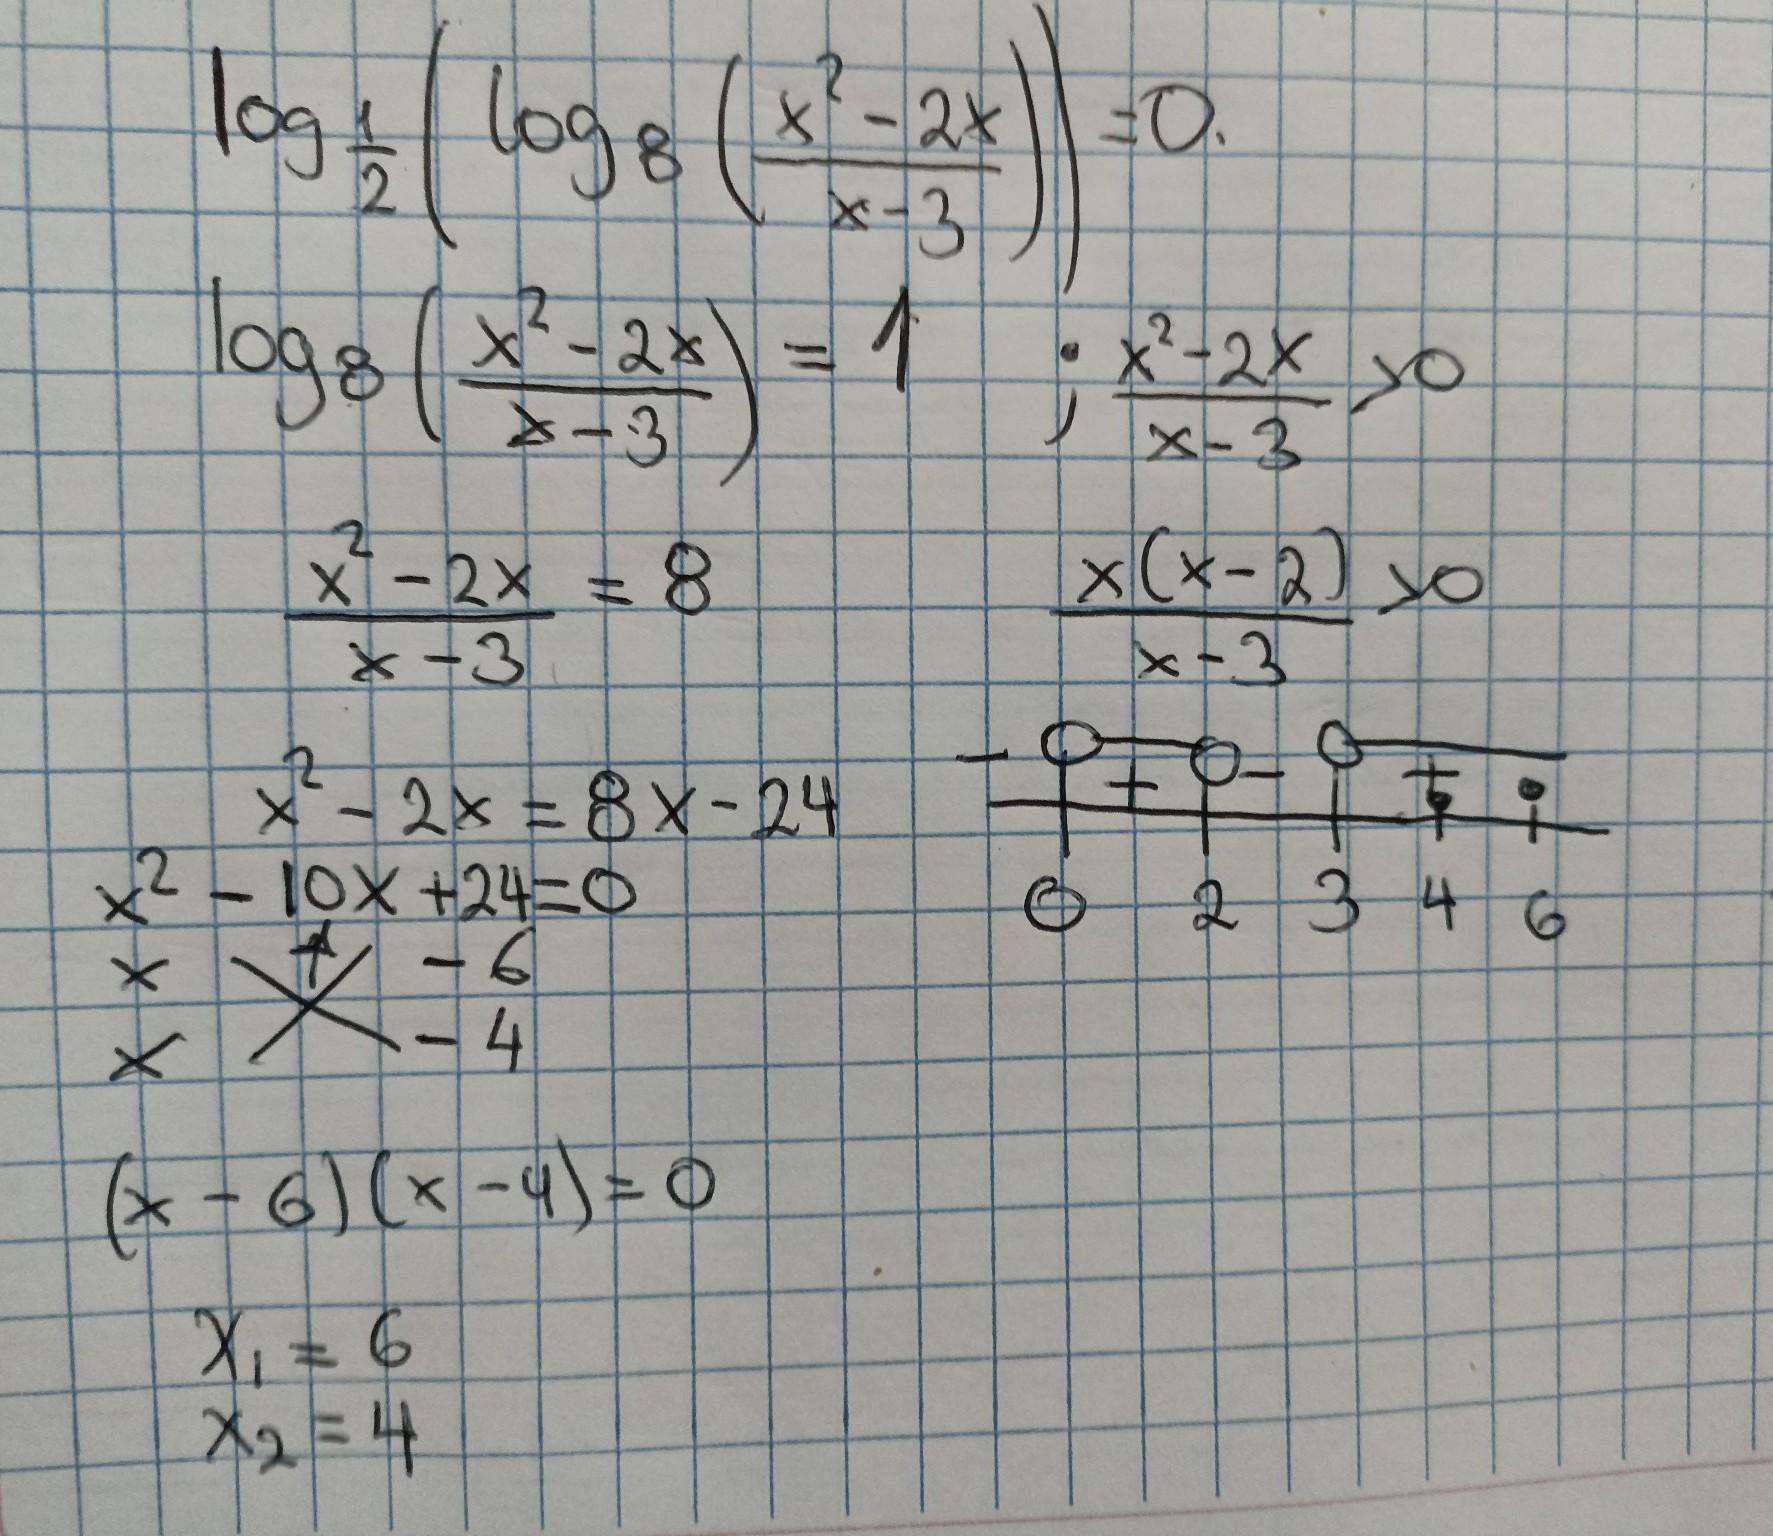 log_{1/2} ( log_8 ( (x² - 2x)/(x - 3) ) ) = 0.
log_8 ( (x² - 2x)/(x - 3) ) = 1 ; (x² - 2x)/(x - 3) > 0
(x² - 2x)/(x - 3) = 8
x(x - 2)/(x - 3) > 0
x² - 2x = 8x - 24
- + - +
0 2 3 4 6
x² - 10x + 24 = 0
x + - 6
x - 4
(x - 6)(x - 4) = 0
x₁ = 6
x₂ = 4